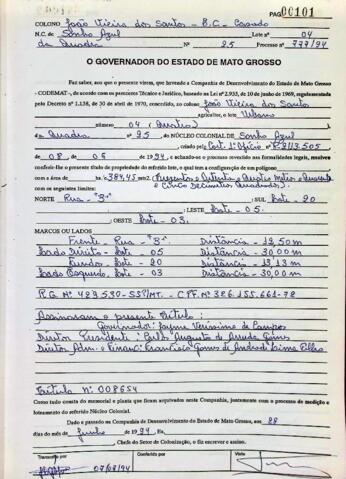 PAG 00101
COLONO João Vieira dos Santos - B.C - Casado
N.C. de Sonho Azul LOTE 04
da Quadra Nº 25 Processo nº 777/94
O GOVERNADOR DO ESTADO DE MATO GROSSO
Faz saber, aos que o presente virem, que havendo a Companhia de Desenvolvimento do Estado de Mato Grosso
- CODEMAT-, de acordo com os pareceres Técnico e Jurídico, baseado na Lei nº 2.933, de 10 de junho de 1969, regulamentada
pelo Decreto nº 1.138, de 30 de abril de 1970, concedido, ao colono João Vieira dos Santos
agricultor, o lote Urbano
nº 04 (Quatro)
da Quadra nº 25, do NÚCLEO COLONIAL DE Sonho Azul
criado pelo Cert. 1º Ofício nº R-2113.505
de 08, de 06 de 1994, e achando-se o processo revestido das formalidades legais, resolveu
conferir-lhe o presente título de propriedade do referido lote, o qual tem a configuração de um polígono
com a área de 384,45 mts2. (Trezentos e Oitenta e Quatro Metros e Quarenta
e Cinco Decimetros Quadrados).
com os seguintes limites:
NORTE Rua - "B" - ; SUL Lote - 20
; LESTE Lote - 05.
; OESTE Lote - 03.
MARCOS OU LADOS
Frente - Rua - "B" Distância - 12,50m
Lado Direito - Lote - 05 Distância - 30,00m
Fundos - Lote - 20 Distância - 13,13m
Lado Esquerdo - Lote - 03 Distância - 30,00m
R.G. Nº 489.530-SSP/MT. - CPF. Nº 386.155.661-78
Assinaram o presente Título:
Governador: Jayme Verissimo de Campos
Diretor Presidente: Carlos Augusto de Arruda Gomes
Diretor Adm. e Financ: Francisco Gomes de Andrade Lima Filho
Título nº: 008654
Como tudo consta do memorial e planta que ficam arquivados nesta Companhia, juntamente com o processo de medição e
loteamento do referido Núcleo Colonial.
Dado e passado na Companhia de Desenvolvimento do Estado de Mato Grosso, aos 28
dias do mês de Junho de 1994 Eu,
Chefe do Setor de Colonização, o fiz escrever e assino.
Transcrito por Conferido por Visto
07/08/94